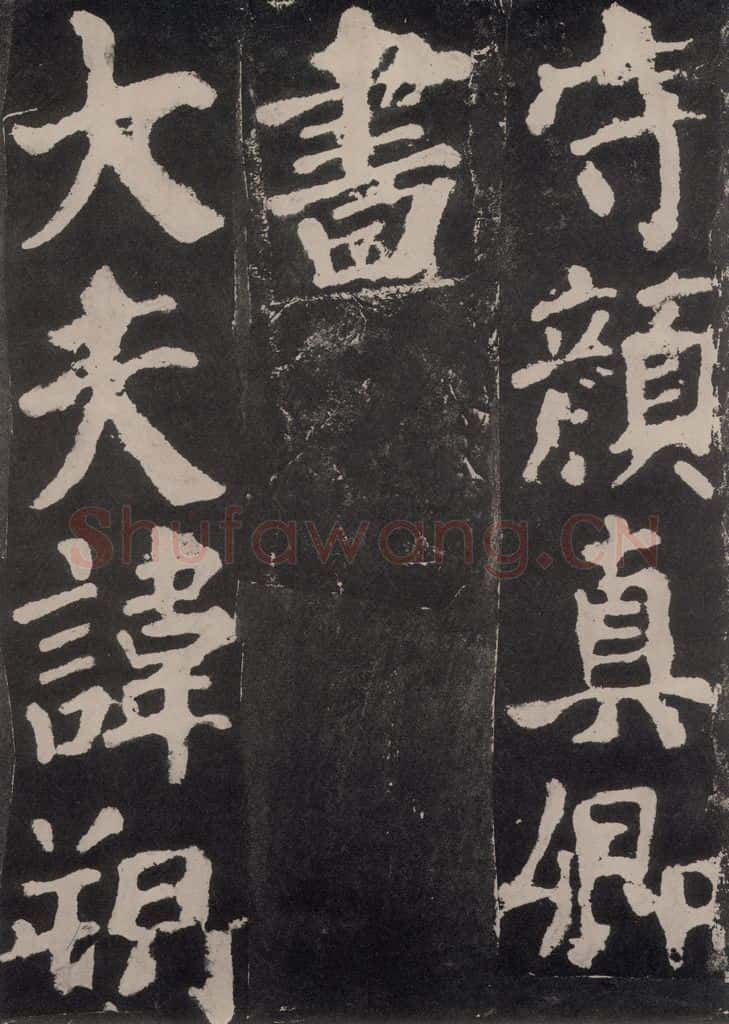 守顏真卿
書
大夫諱朔
Shufawang.CN